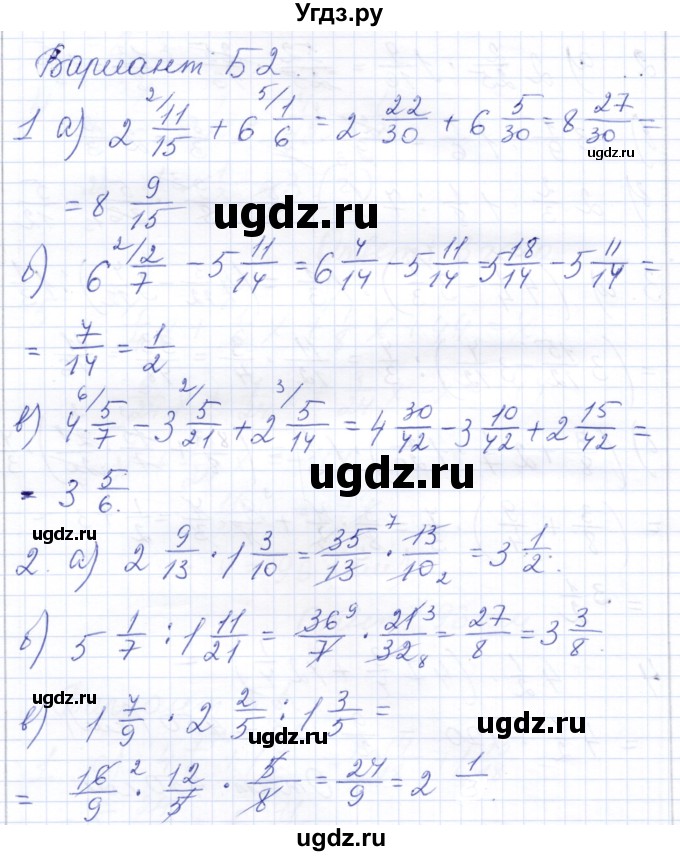 Угдз.ру
Вариант Б2
1 а) 2 2/ 11/15 + 6 5/ 1/6 = 2 22/30 + 6 5/30 = 8 27/30 =
ugdz.ru
= 8 9/15
ugdz.ru
б) 6 2/ 2/7 - 5 11/14 = 6 4/14 - 5 11/14 5 18/14 - 5 11/14 =
= 7/14 = 1/2
в) 4 6/ 5/7 - 3 2/ 5/21 + 2 3/ 5/14 = 4 30/42 - 3 10/42 + 2 15/42 =
ugdz.ru
= 3 5/6.
ugdz.ru
2. а) 2 9/13 · 1 3/10 = 35/13 · 7 13/10 2 = 3 1/2.
ugdz.ru
б) 5 1/7 : 1 11/21 = 36 9/7 · 21 3/32 8 = 27/8 = 3 3/8.
ugdz.ru
в) 1 7/9 · 2 2/5 : 1 3/5 =
ugdz.ru
ugdz.ru
= 16 2/9 · 12/5 · 5/8 = 24/9 = 2 1
ugdz.ru